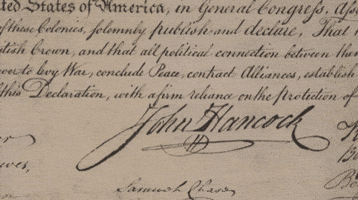 ted States of America, in General Congress,
of these Colonies, solemnly publish and declare, That
tish Crown, and that all political connection between
to levy War, conclude Peace, contract Alliances, establish
this Declaration, with a firm reliance on the protection of
John Hancock
Samuel Chase